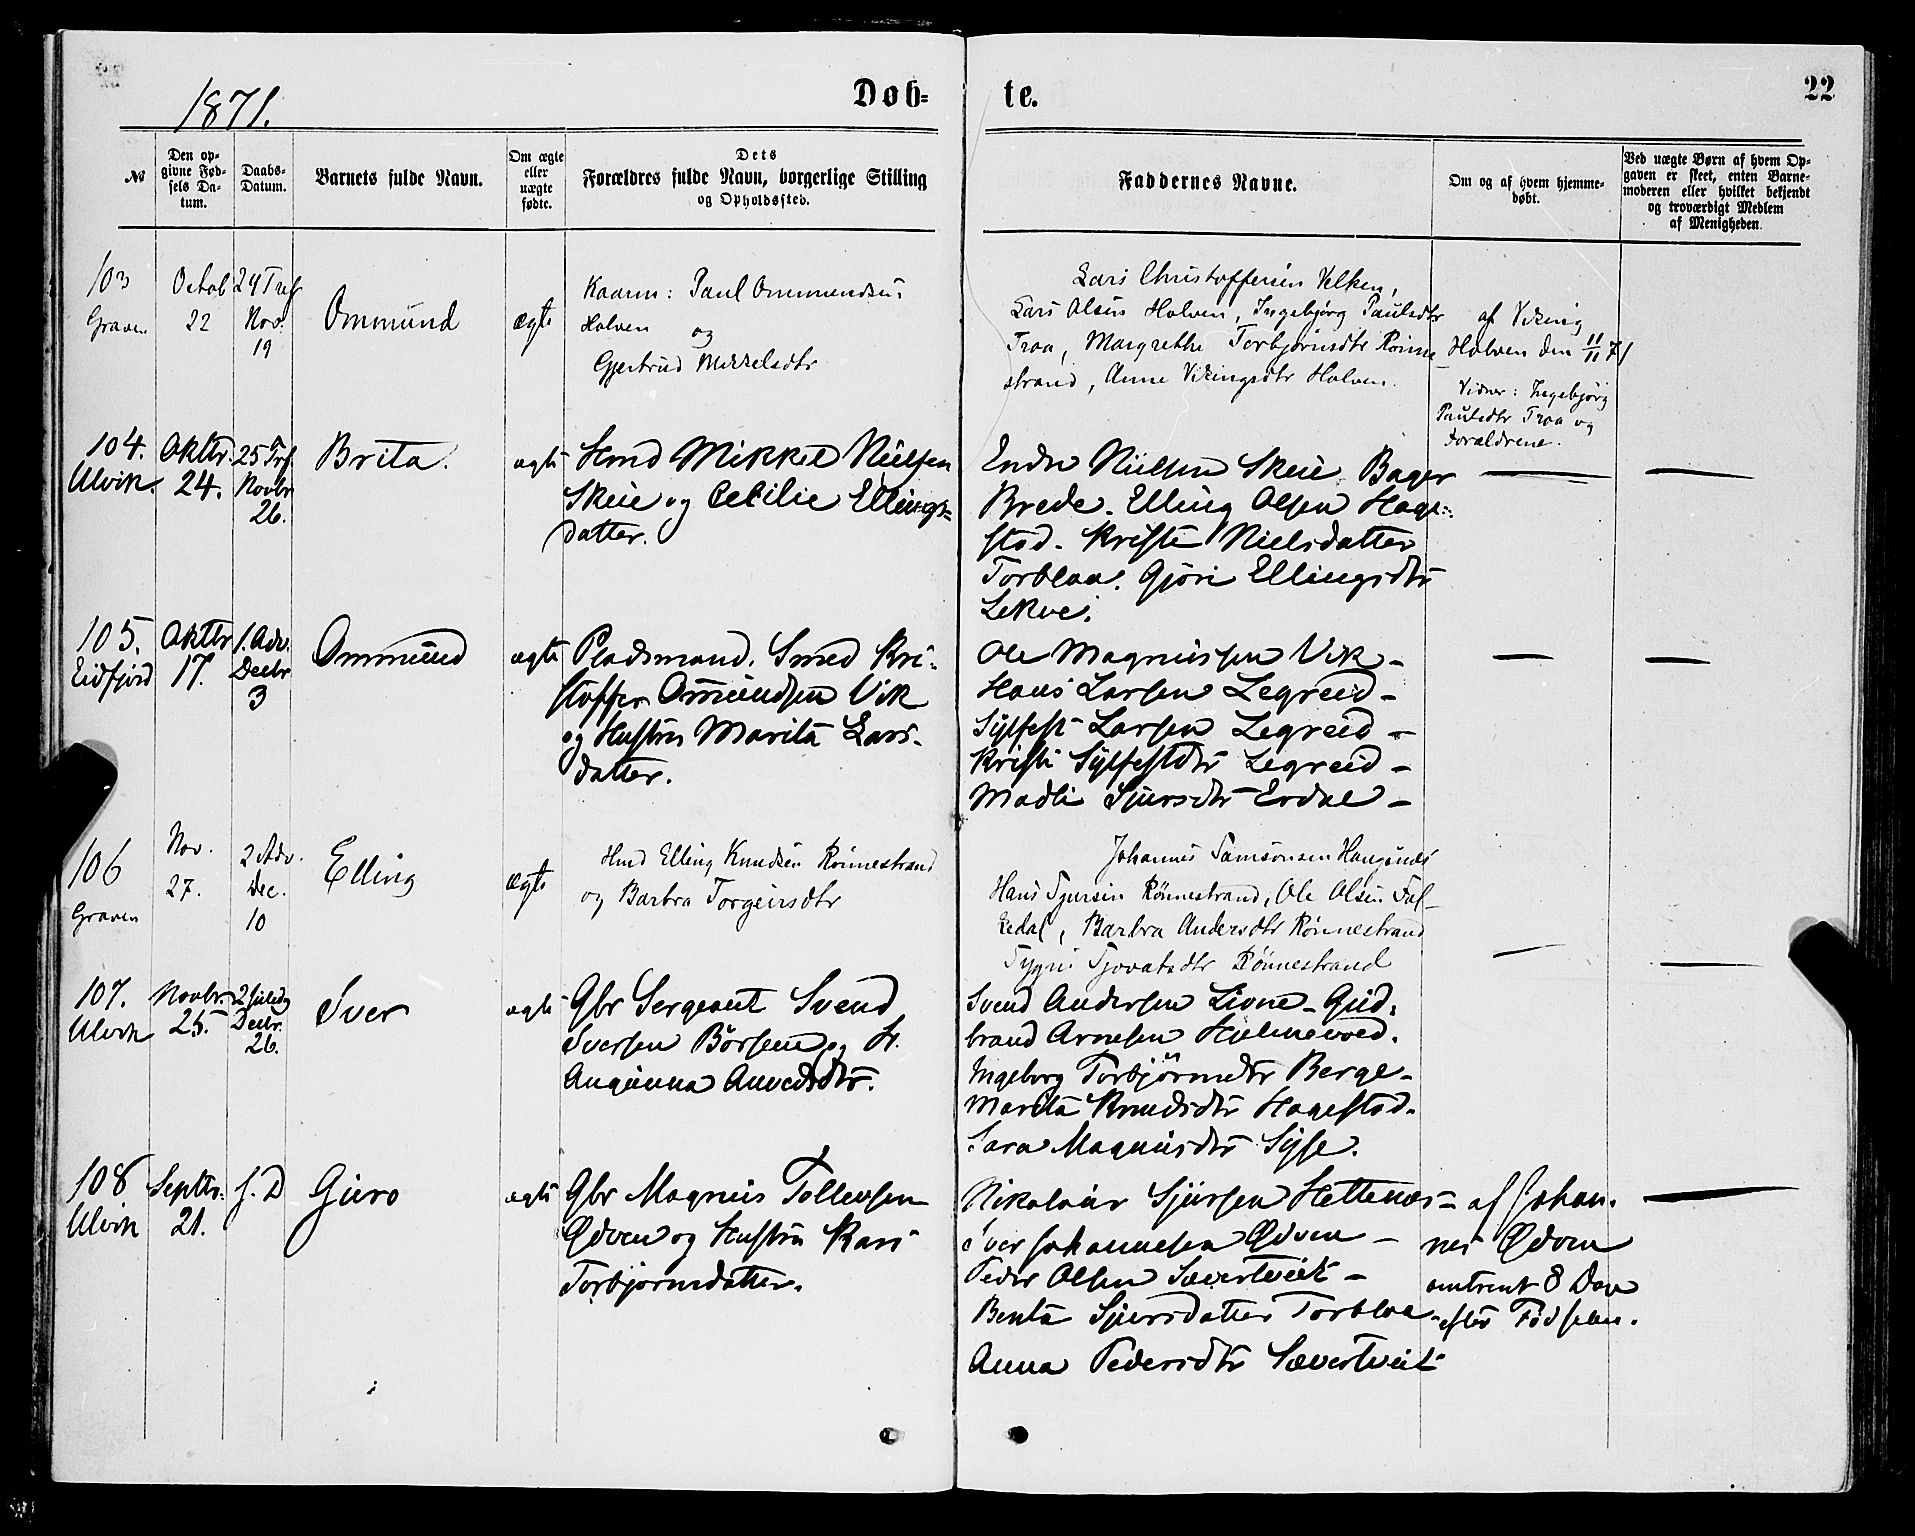 1871.
Døb=
te.
22
№
Den op-
givne Fød-
sels Da-
tum.
Daabs-
Datum.
Barnets fulde Navn.
Om ægte
eller
uægte
fødte.
Dets
Forældres fulde Navn, borgerlige Stilling
og Opholdssted.
Faddernes Navne.
Om og af hvem hjemme-
døbt.
Ved uægte Børn af hvem Op-
gaven er skeet, enten Barne-
moderen eller hvilket bekjendt
og troværdigt Medlem
af Menigheden.
103
Graven
Octob
22
24 Tref
Nov.
19
Ommund
ægte
Kaarm: Paul Ommundsen
Holven og
Gjertrud Mikkelsdtr
Lars Christoffersen Velken,
Lars Olsen Holven, Ingebjørg Paulsdtr
Traa, Margrethe Torbjørnsdtr Rønne
strand, Anne Vikingsdtr Holven.
af Viking
Holven den 11/11 71
Vidner: Ingebjørg
Paulsdtr Traa og
Forældrene.
104.
Ulvik.
Oktbr.
24.
25 Trf.
Novbr
26.
Brita.
ægte
Hmd Mikkel Nielsen
Skeie og Cecilie Ellings-
datter.
Endre Nielsen Skeie Bager
Brede. Elling Olsen Hage-
stad. Kristi Nielsdatter
Torblaa. Gjøri Ellingsdtr
Lekve.
105.
Eidfjord
Oktbr
17.
1. Adv.
Decbr
3
Ommund
ægte
Pladsmand. Smed Kri-
stoffer Omundsen Vik
og Hustru Marita Lars-
datter.
Ole Magnussen Vik -
Hans Larsen Legreid -
Sylfest Larsen Legreid -
Kristi Sylfestdtr Legreid -
Madli Sjursdtr Erdal -
106
Graven
Nov.
27.
2 Adv.
Dec.
10
Elling
ægte
Hmd Elling Knudsen Rønnestrand
og Barbra Torgeirsdtr
Johannes Samsonsen Haugenes
Hans Sjursen Rønnestrand, Ole Olsen Fol-
kedal, Barbra Andersdtr Rønnestrand
Sygni Sjovatsdtr Rønnestrand
107.
Ulvik
Novbr.
25.
2 Juledg
Decbr.
26.
Iver
ægte
Gbr Sergeant Svend
Iversen Børsem og H.
Angunna Anvedsdtr.
Svend Andersen Lione - Gud-
brand Arnesen Hjelmevold.
Ingeborg Torbjørnsdtr Berge -
Marita Knudsdtr Hagestad.
Sara Magnusdtr Sysse.
108
Ulvik
Septbr.
21.
s. D
Guro
ægte
Gbr Magnus Tollevsen
Ødven og Hustru Kari
Torbjornsdatter.
Nikolaus Sjursen Hettenæs -
Iver Johannesen Ødven -
Peder Olsen Sævertveit -
Benta Sjursdatter Torblaa -
Anna Pedersdtr Sævertveit
af Johan-
nes Ødven
omtrent 8 Dage
efter Fødselen.